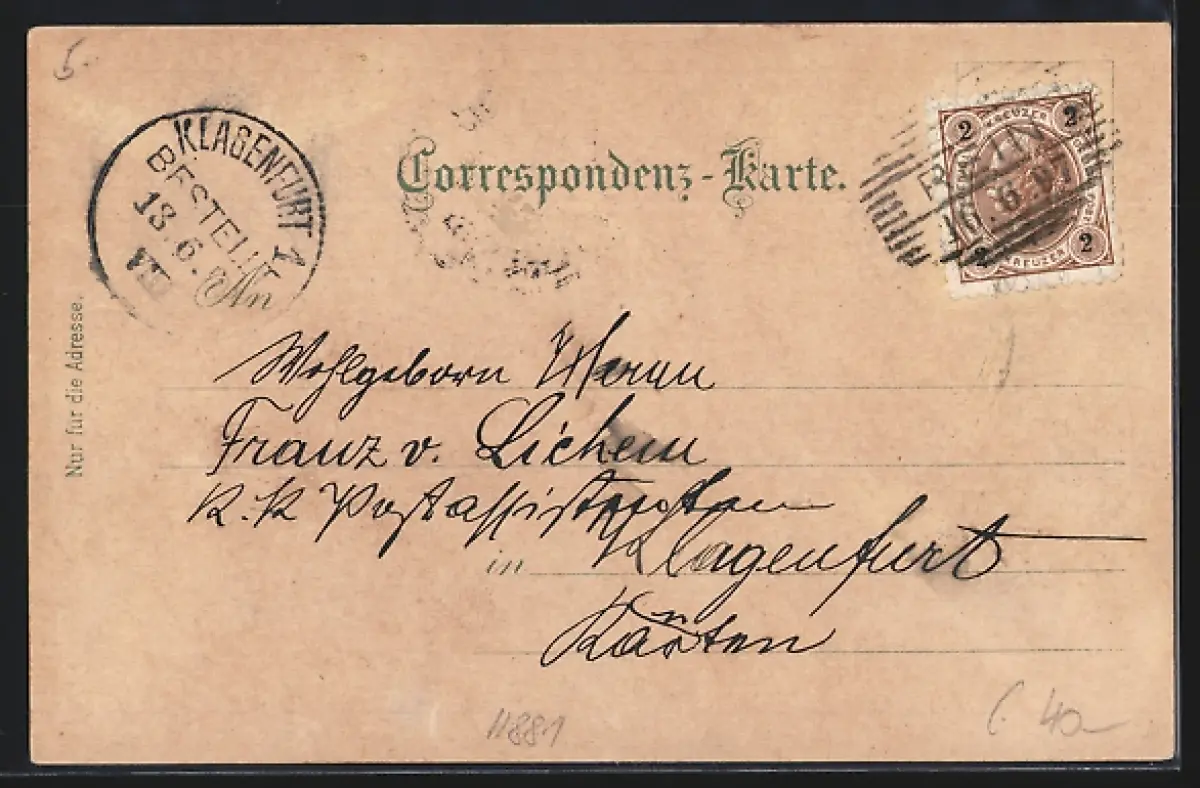 5.
KLAGENFURT 1
BESTELLT
18.6.
VIII
An
Correspondenz-Karte.
2 KREUZER 2
2 KREUZER 2
Nur für die Adresse.
Wohlgeborn Herrn
Franz v. Lichem
K. K Postassistenten
in Klagenfurt
Kärnten
11881
40-